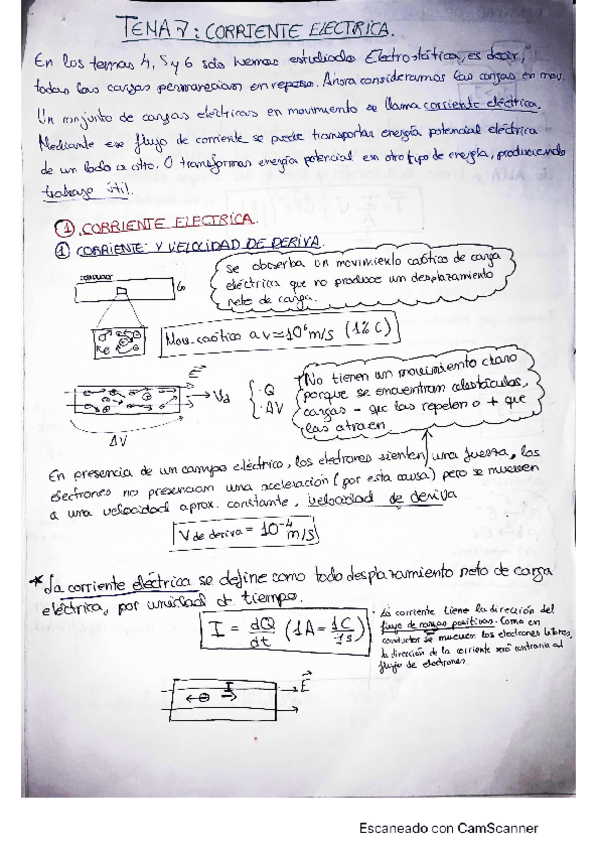 TEMA 7: CORRIENTE ELECTRICA.
En los temas 4, 5 y 6 sólo hemos estudiado Electrostática, es decir,
todas las cargas permanecían en reposo. Ahora consideramos las cargas en mov.
Un conjunto de cargas eléctricas en movimiento se llama corriente eléctrica.
Mediante ese flujo de corriente se puede transportar energía potencial eléctrica
de un lado a otro. O transformar energía potencial en otro tipo de energía, produciendo
trabajo útil.
① CORRIENTE ELECTRICA.
① CORRIENTE Y VELOCIDAD DE DERIVA.
Se observa un movimiento caótico de carga
eléctrica que no produce un desplazamiento
neto de carga.
conductor
Mov. caótico a v≈10⁶ m/s (1% C)
E
Vd
· Q
· ΔV
ΔV
No tienen un movimiento claro
porque se encuentran obstáculos,
cargas - que las repelen o + que
las atraen
En presencia de un campo eléctrico, los electrones sienten una fuerza, los
electrones no presencian una aceleración (por esta causa) pero se mueven
a una velocidad aprox. constante, velocidad de deriva
V de deriva = 10⁻⁴ m/s
* La corriente eléctrica se define como todo desplazamiento neto de carga
eléctrica, por unidad de tiempo.
I = dQ/dt (1A = 1C/1s)
· La corriente tiene la dirección del
flujo de cargas positivas. Como en
conductor se mueven los electrones libres,
la dirección de la corriente será contraria al
flujo de electrones
I
E
⊖ ⊕
Escaneado con CamScanner